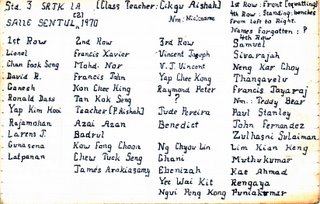 Std. 3 SRTK 1A (Class Teacher: Cikgu Aishah)
(2)
SAUL SENTUL, 1970
Nm: Nickname
1st Row: Front (squatting)
4th Row: Standing: benches
From Left to Right.
Names Forgotten: ?
1st Row
Lionel
Chan Fook Seng
David R.
Ganesh
Ronald Dass
Yap Kim Hooi
Rajamohan
Larens J.
Gunasena
Lalpanan
2nd Row
Francis Xavier
Mohd. Nor
Francis John
Kon Chee King
Tan Kok Seng
Teacher [P. Aishah]
Azai Azan
Badrul
Kow Fong Choon
Chew Tuck Seng
James Arokiasamy
3rd Row
Vincent Joseph
V.J. Vincent
Yap Chee Kong
Raymond Peter
?
Jude Pereira
Benedict
Ng Chyou Lin
Ghani
Ebenizah
Yee Wai Kit
Ngui Peng Kong
4th Row
Samuel
Sivarajah
Neng Kar Choy
Thangavelu
Francis Jayaraj
Nm.: Teddy Bear
Paul Stanley
John Fernandez
Zulhasni Sulaiman
Lim Kian Heng
Muthukumar
Mat Ahmad
Rengaya
Puniakumar